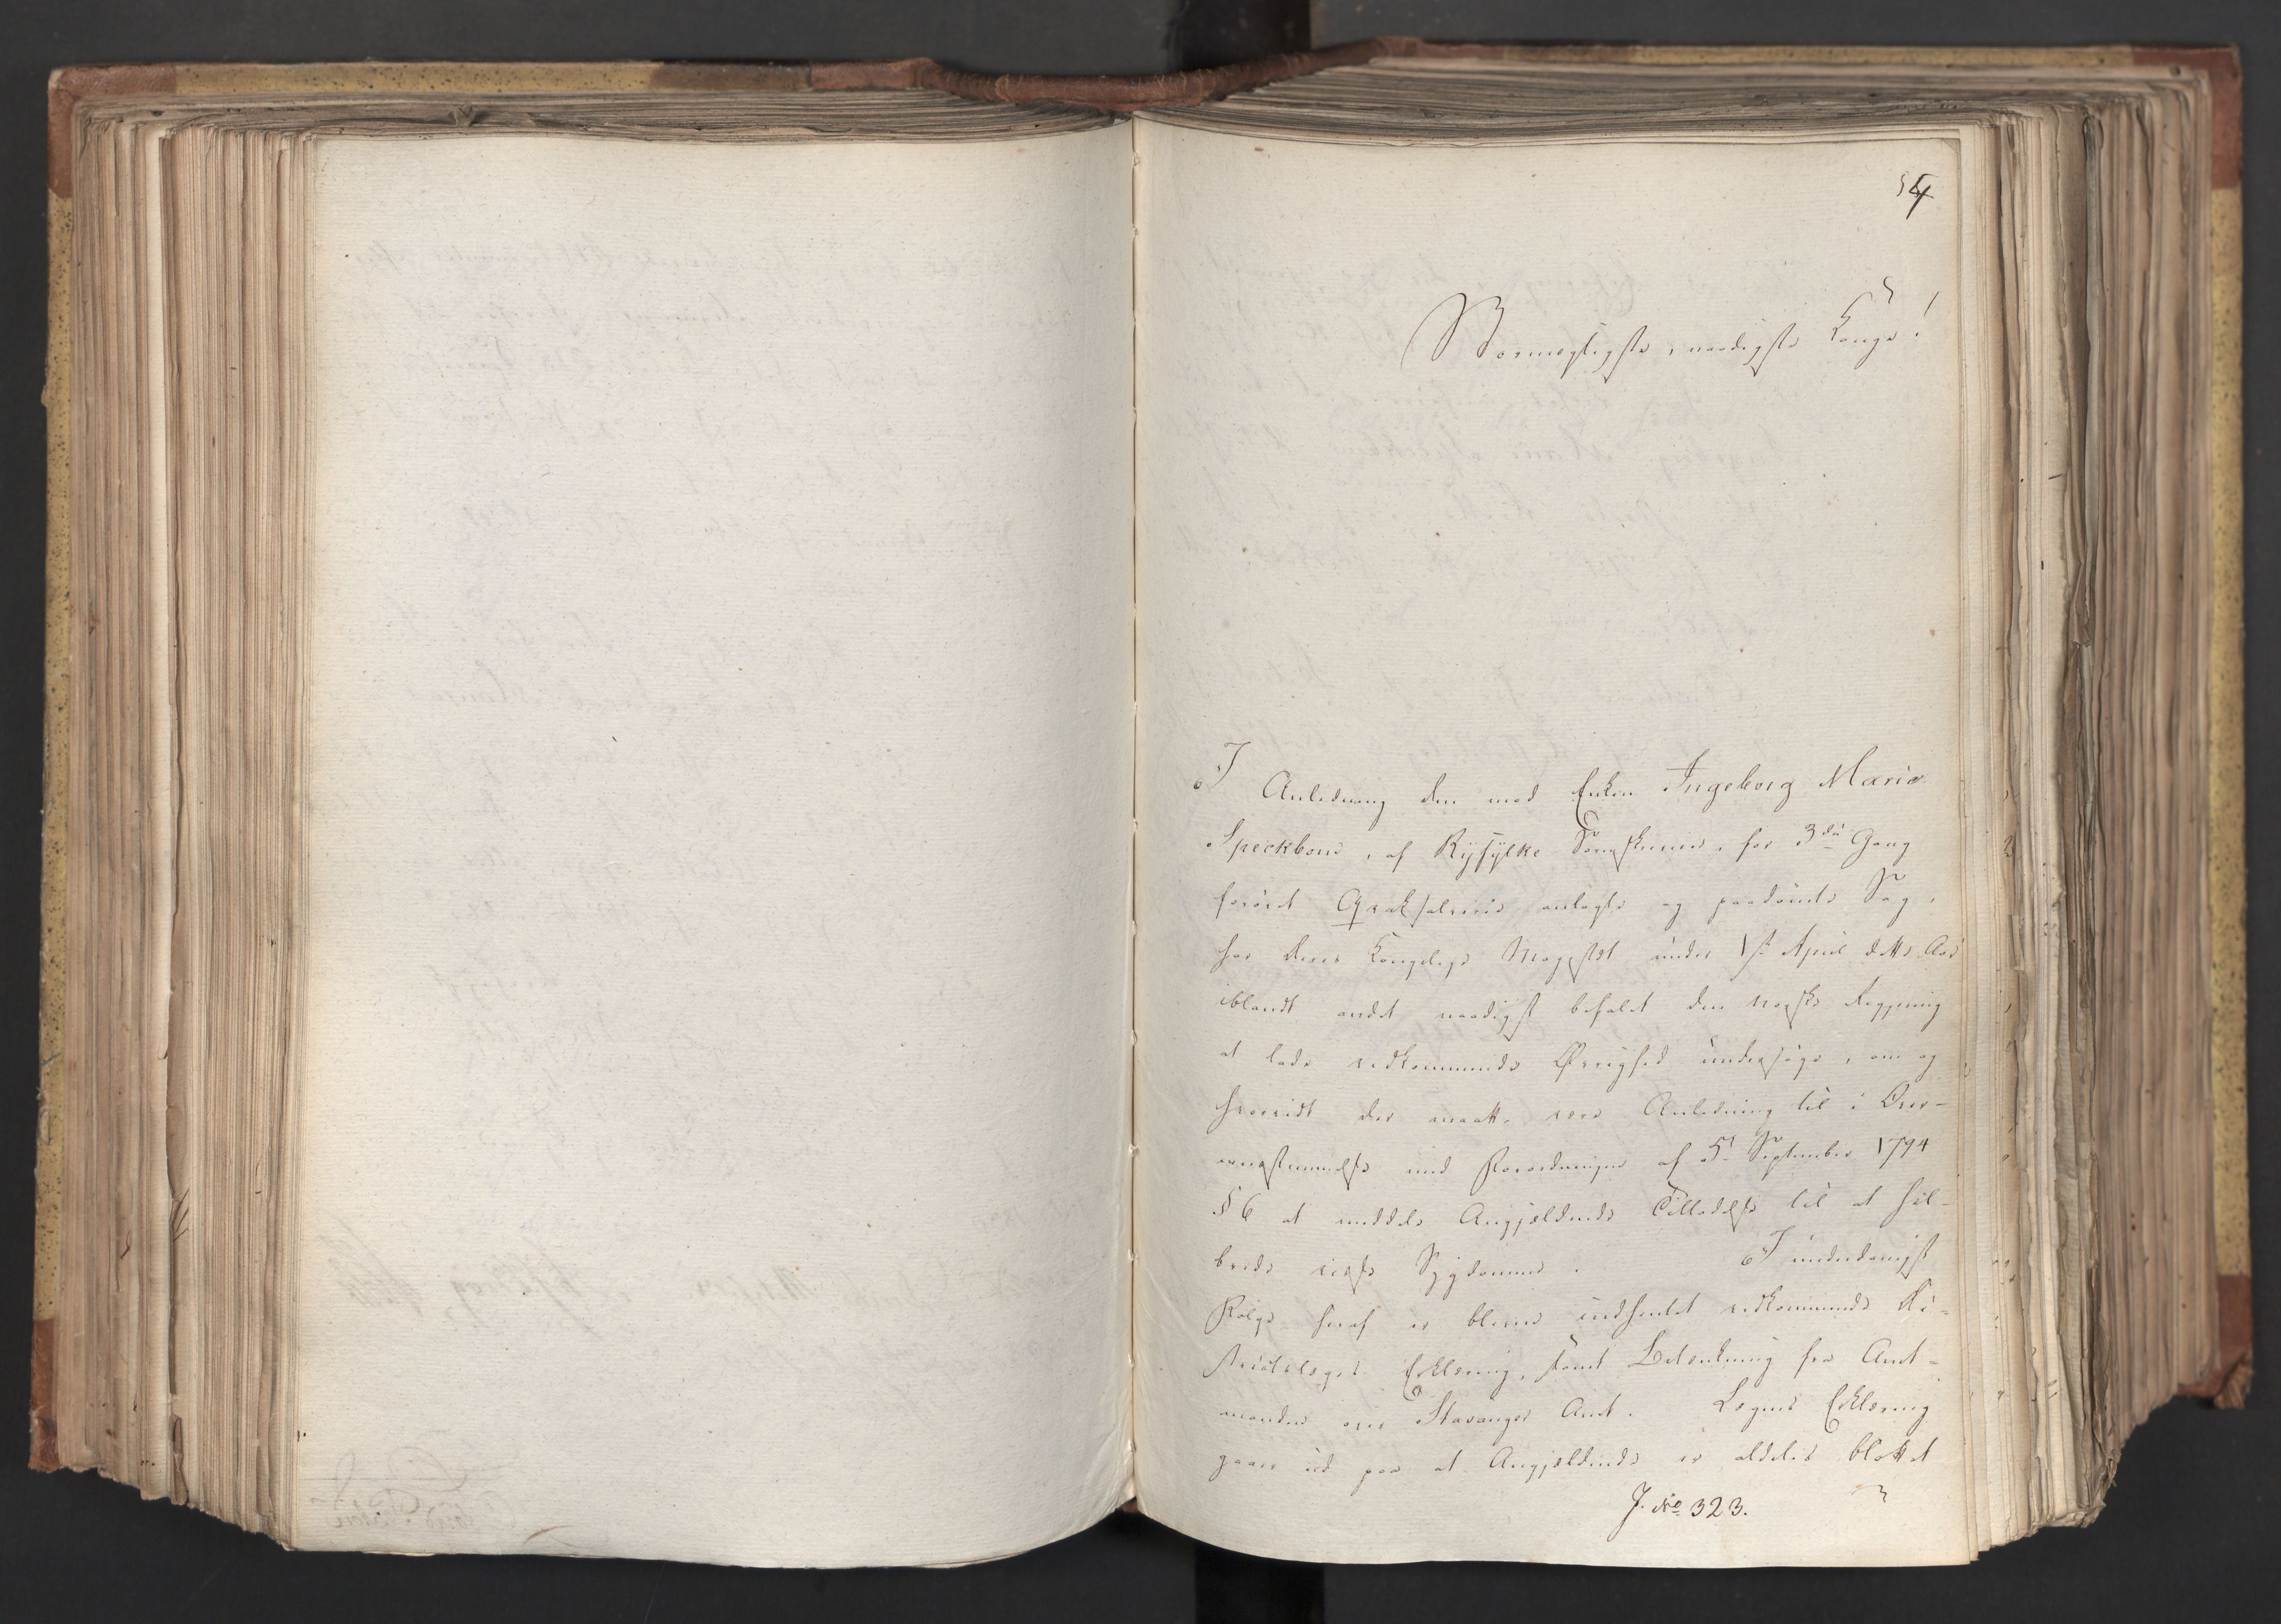 54
Stormægtigste, naadigste Konge!
I Anledning den mod Enken Ingeborg Marie
Speckbom, af Ryfylke Sorenskriverie, for 3die Gang
forøvet Qvaksalverie anlagte og paadömte Sag,
har Deres Kongelige Majestæt under 1ste April dette Aar
iblandt andet naadigst befalet den norske Regjering
at lade vedkommende Øvrighed undersöge, om og
hvorvidt der maatte være Anledning til i Over-
eensstemmelse med Forordningen af 5te September 1794
§ 6 at meddele Angjældende Tilladelse til at hel-
brede visse Sygdomme. I underdanigst
Fölge heraf er bleven indhentet vedkommende Di-
strictslæges Erklæring, samt Betænkning fra Amt-
manden over Stavanger Amt. Lægens Erklæring
gaaer ud paa at Angjældende er aldeles blottet
J. No 323.